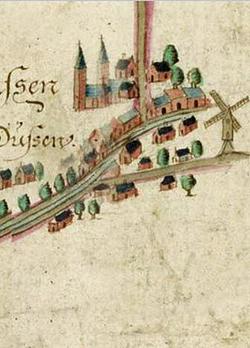 ssen
Duÿsen.